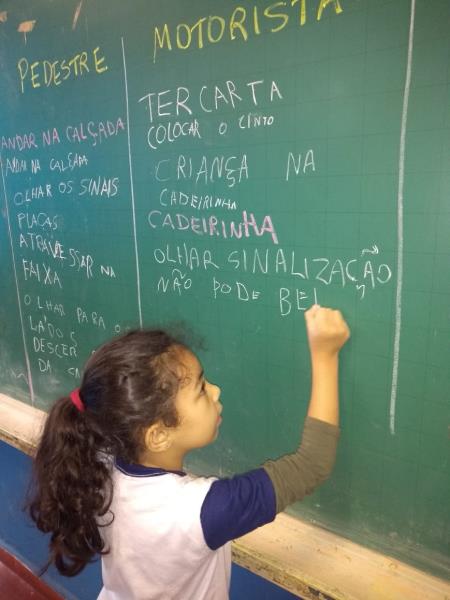 PEDESTRE
ANDAR NA CALÇADA
ANDAR NA CALÇADA
OLHAR OS SINAIS
PLACAS
ATRAVESSAR NA
FAIXA
OLHAR PARA O
LADOS
DESCER
DA
MOTORISTA
TER CARTA
COLOCAR O CINTO
CRIANÇA NA
CADEIRINHA
CADEIRINHA
OLHAR SINALIZAÇÃO
NÃO PODE BEI